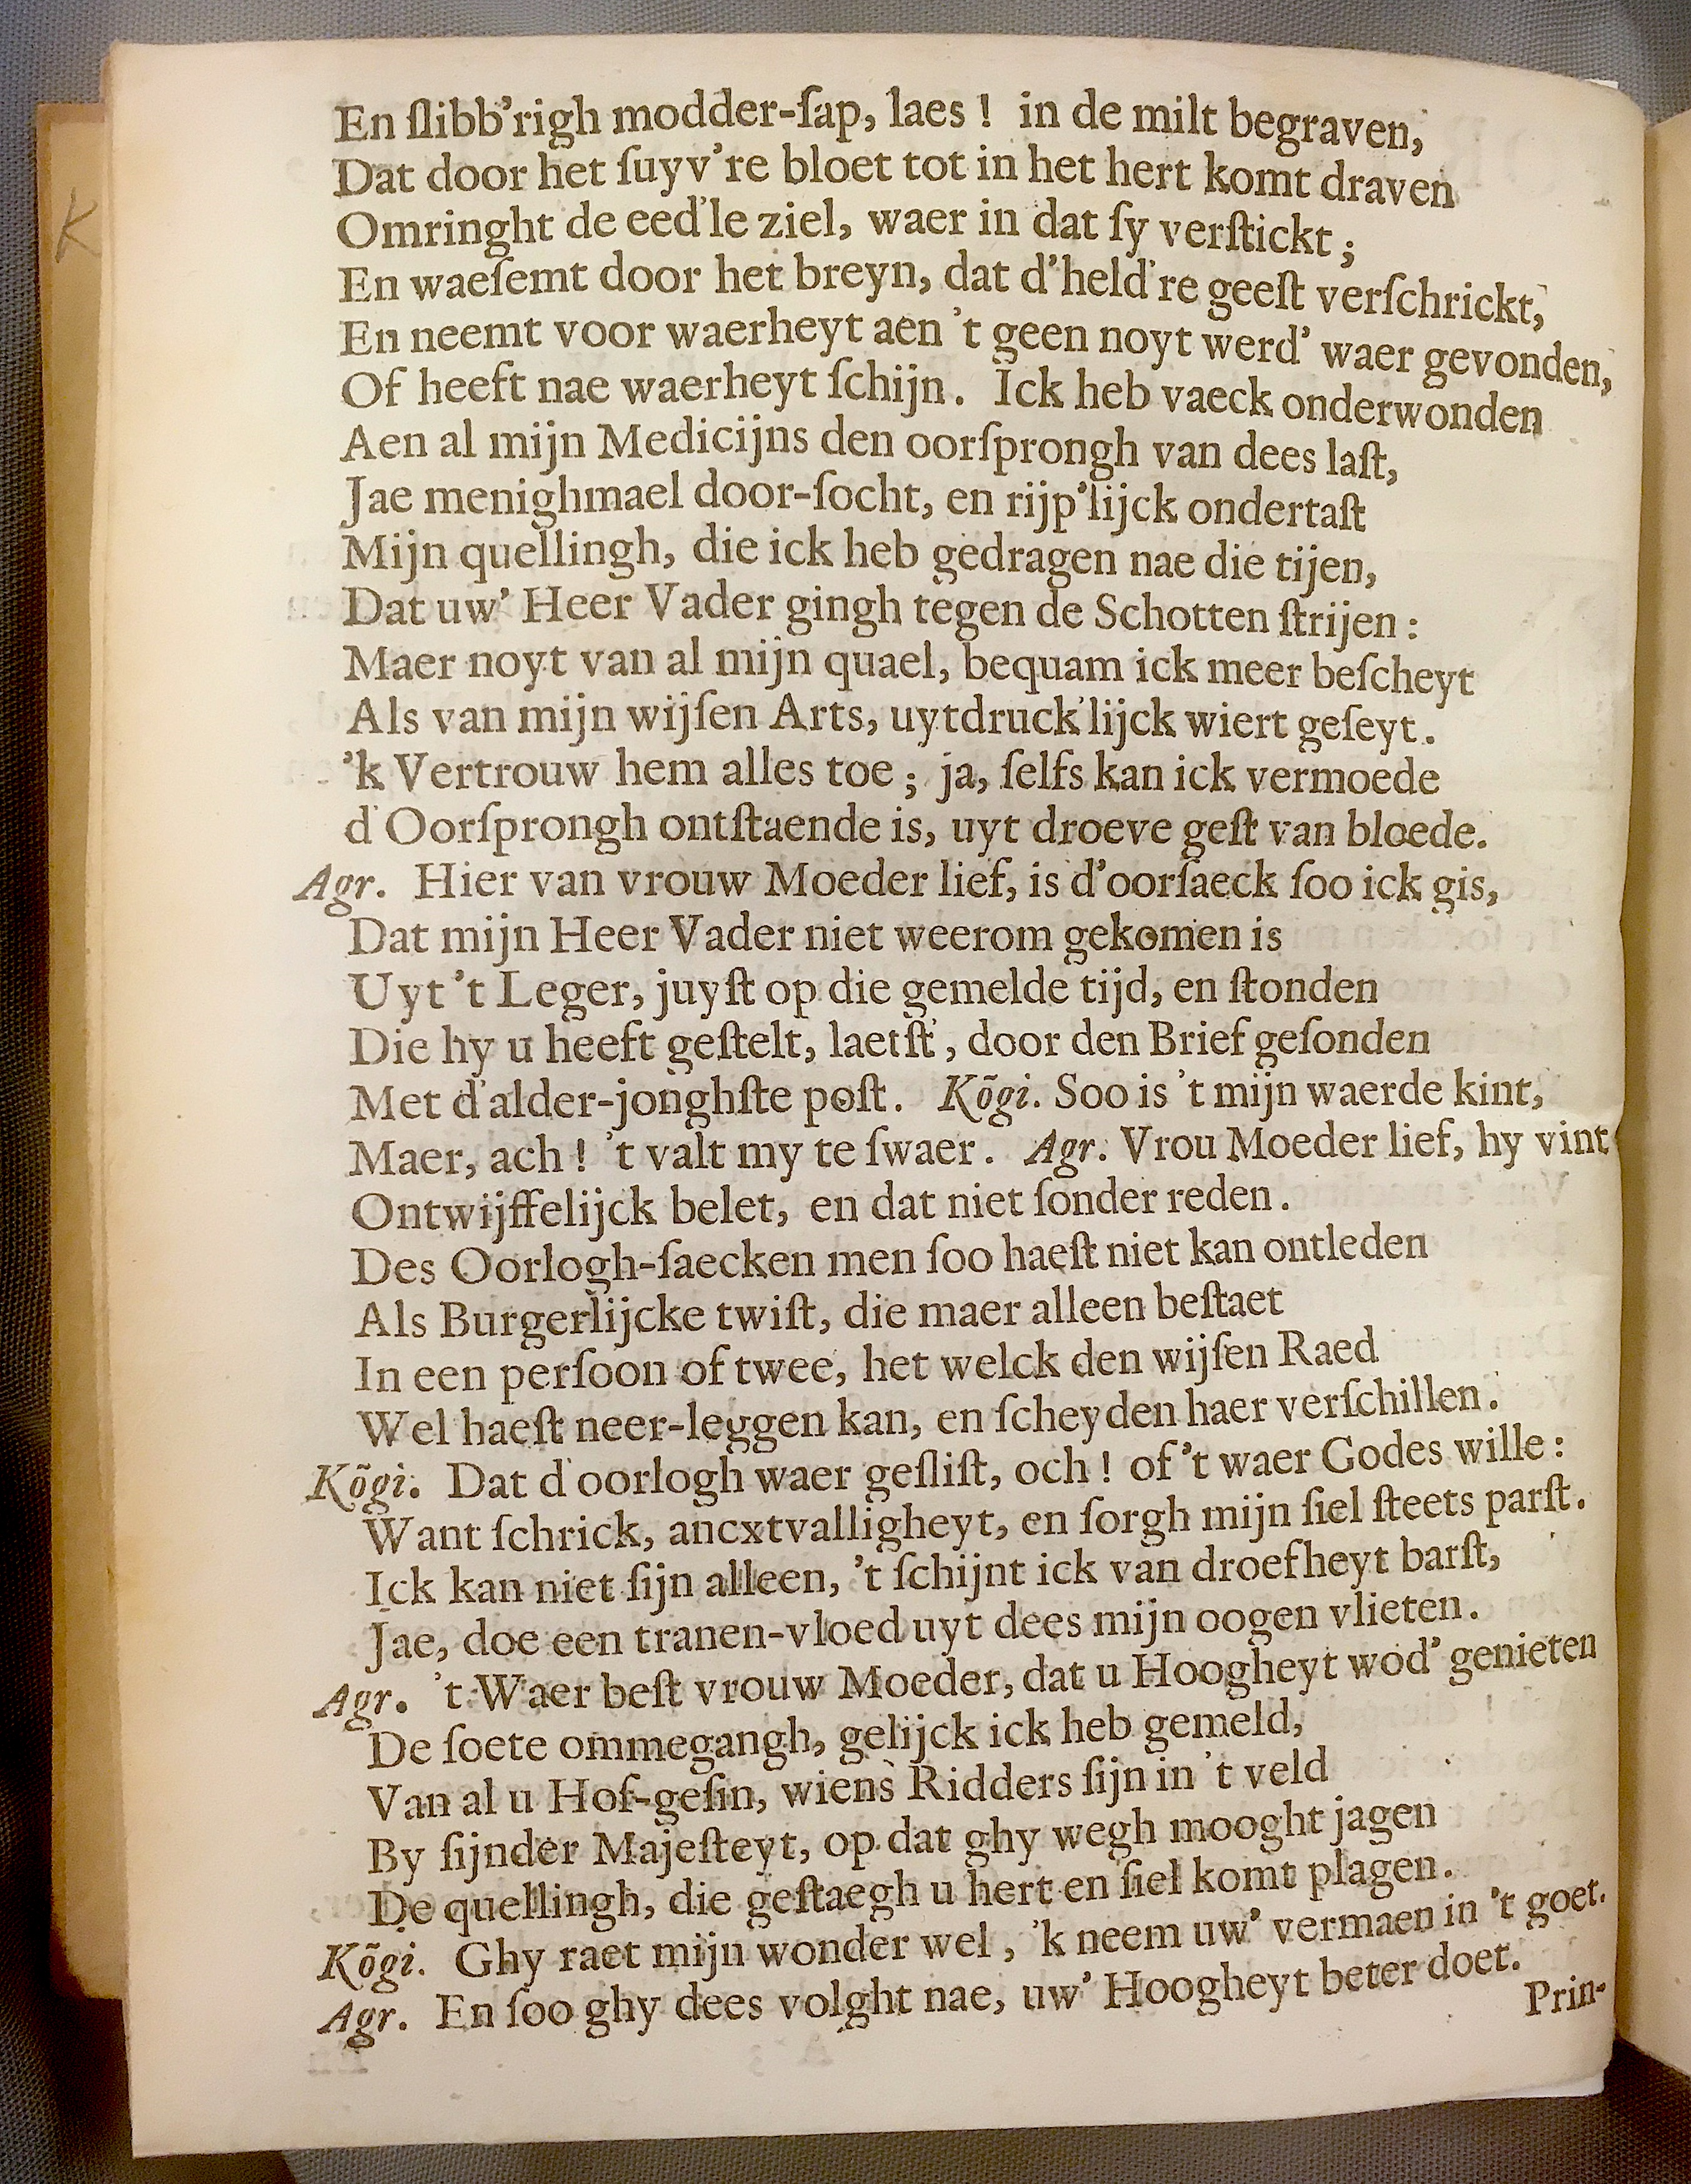 En ſlibb’righ modder-ſap, laes! in de milt begraven,
Dat door het ſuyv’re bloet tot in het hert komt draven
Omringht de eed’le ziel, waer in dat ſy verſtickt;
En waeſemt door het breyn, dat d’held’re geeſt verſchrickt,
En neemt voor waerheyt aen ’t geen noyt werd’ waer gevonden,
Of heeft nae waerheyt ſchijn. Ick heb vaeck onderwonden
Aen al mijn Medicijns den oorſprongh van dees laſt,
Jae menighmael door-ſocht, en rijp’lijck ondertaſt
Mijn quellingh, die ick heb gedragen nae die tijen,
Dat uw’ Heer Vader gingh tegen de Schotten ſtrijen:
Maer noyt van al mijn quael, bequam ick meer beſcheyt
Als van mijn wijſen Arts, uytdruck’lijck wiert geſeyt.
’k Vertrouw hem alles toe; ja, ſelfs kan ick vermoede
d’Oorſprongh ontſtaende is, uyt droeve geſt van bloede.
Agr. Hier van vrouw Moeder lief, is d’oorſaeck ſoo ick gis,
Dat mijn Heer Vader niet weerom gekomen is
Uyt ’t Leger, juyſt op die gemelde tijd, en ſtonden
Die hy u heeft geſtelt, laetſt’, door den Brief geſonden
Met d’alder-jonghſte poſt. Kõgi. Soo is ’t mijn waerde kint,
Maer, ach! ’t valt my te ſwaer. Agr. Vrou Moeder lief, hy vint
Ontwijffelijck belet, en dat niet ſonder reden.
Des Oorlogh-ſaecken men ſoo haeſt niet kan ontleden
Als Burgerlijcke twiſt, die maer alleen beſtaet
In een perſoon of twee, het welck den wijſen Raed
Wel haeſt neer-leggen kan, en ſcheyden haer verſchillen.
Kõgi. Dat d’oorlogh waer geſliſt, och! of ’t waer Godes wille:
Want ſchrick, ancxtvalligheyt, en ſorgh mijn ſiel ſteets parſt.
Ick kan niet ſijn alleen, ’t ſchijnt ick van droefheyt barſt,
Jae, doe een tranen-vloed uyt dees mijn oogen vlieten.
Agr. ’t Waer beſt vrouw Moeder, dat u Hoogheyt wod’ genieten
De ſoete ommegangh, gelijck ick heb gemeld,
Van al u Hof-geſin, wiens Ridders ſijn in ’t veld
By ſijnder Majeſteyt, op dat ghy wegh mooght jagen
De quellingh, die geſtaegh u hert en ſiel komt plagen.
Kõgi. Ghy raet mijn wonder wel, ’k neem uw’ vermaen in ’t goet.
Agr. En ſoo ghy dees volght nae, uw’ Hoogheyt beter doet.
Prin-
K